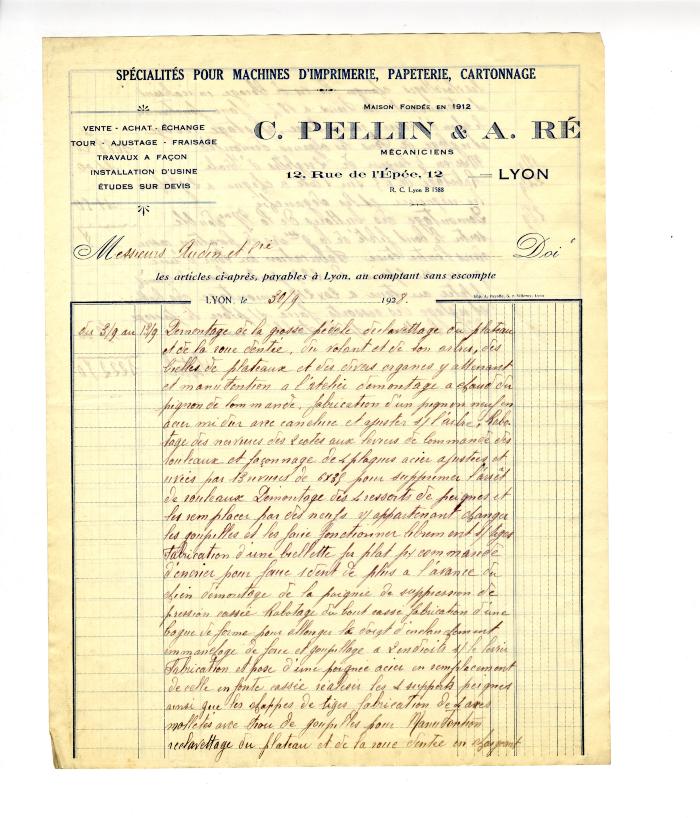 SPÉCIALITÉS POUR MACHINES D'IMPRIMERIE, PAPETERIE, CARTONNAGE
MAISON FONDÉE EN 1912
VENTE - ACHAT - ÉCHANGE
TOUR - AJUSTAGE - FRAISAGE
TRAVAUX A FAÇON
INSTALLATION D'USINE
ÉTUDES SUR DEVIS
C. PELLIN & A. RÉ
MÉCANICIENS
12, Rue de l'Épée, 12 — LYON
R. C. Lyon B 1588
Messieurs Audin et Cie Doi
les articles ci-après, payables à Lyon, au comptant sans escompte
LYON, le 30/9 1928.
du 3/9 au 13/9 Demontage de la grosse pédale declavettage du plateau
et de la roue dentée, du volant et de son arbre, des
bielles de plateaux et des divers organes y attenant
et manutention a l'atelier demontage a chaud du
pignon de commande, fabrication d'un pignon neuf en
acier mi dur avec canelure et ajuster s/ l'arbre, Rabo-
tage des nervures des 2 cotes aux leviers de commande des
rouleaux et façonnage de 4 plaques acier ajustées et
rivées par 18 rivures de pour supprimer l'arrêt
de rouleaux Demontage des 4 ressorts de peignes et
les remplacer par des neufs y appartenant changer
les goupilles et les faire fonctionner librement s/ tiges
Fabrication d'une biellette fer plat pr commande
d'encrier pour faire 1 dent de plus a l'avance du
chien demontage de la poignée de suppression de
pression cassée Rabotage du bout cassé fabrication d'une
bague de forme pour allonger le doigt d'enclanchement
emmanchage de force et goupillage a 2 endroits s/ le levier
Fabrication et pose d'une poignée acier en remplacement
de celle en fonte cassée réaleser les 4 supports peignes
ainsi que les chappes de tiges fabrication de 4 axes
molletés avec trou de goupilles pour Manutention
reclavettage du plateau et de la roue dentée en